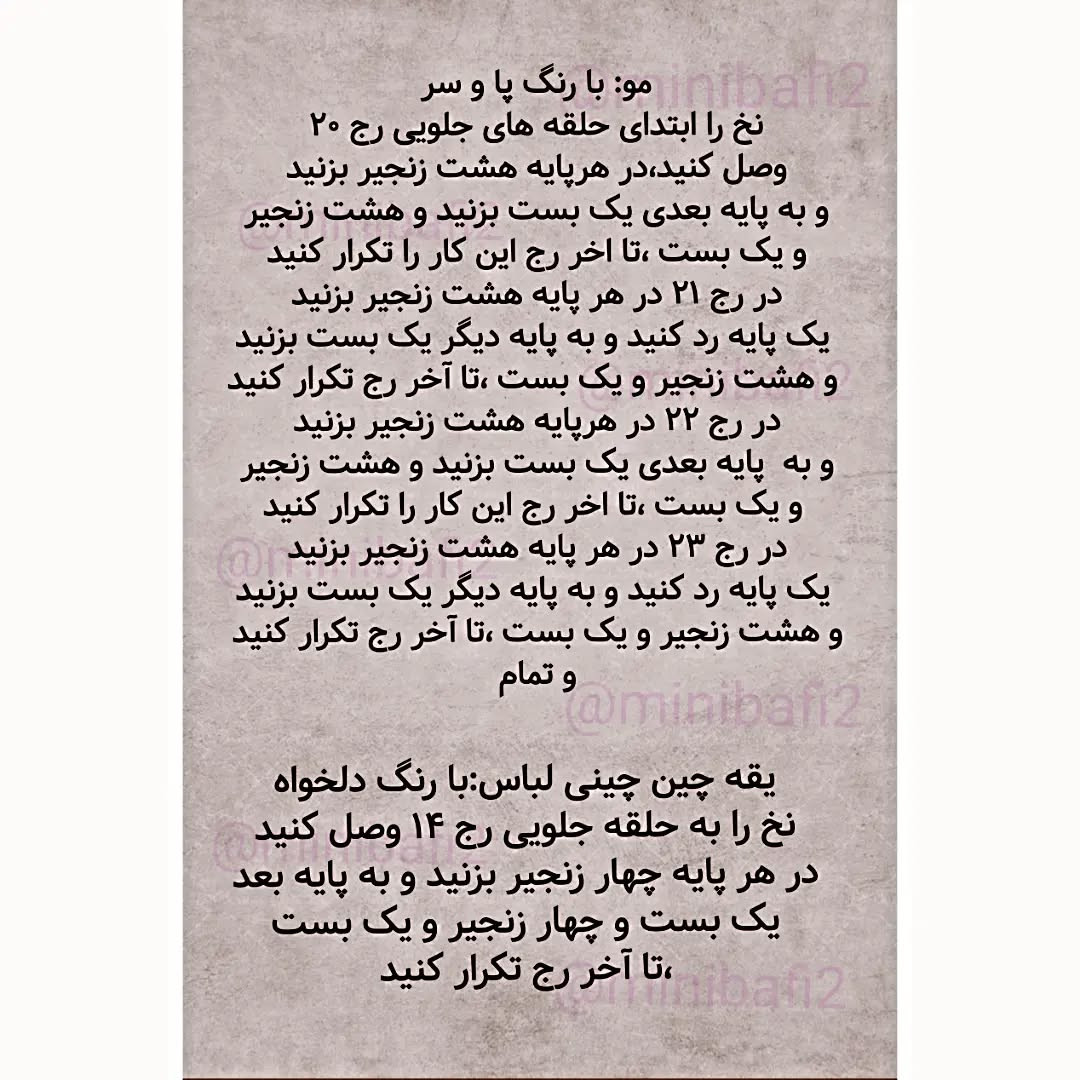 مو: با رنگ پا و سر
نخ را ابتدای حلقه های جلویی رج ۲۰
وصل کنید،در هرپایه هشت زنجیر بزنید
و به پایه بعدی یک بست بزنید و هشت زنجیر
و یک بست ،تا اخر رج این کار را تکرار کنید
در رج ۲۱ در هر پایه هشت زنجیر بزنید
یک پایه رد کنید و به پایه دیگر یک بست بزنید
و هشت زنجیر و یک بست ،تا آخر رج تکرار کنید
در رج ۲۲ در هرپایه هشت زنجیر بزنید
و به پایه بعدی یک بست بزنید و هشت زنجیر
و یک بست ،تا اخر رج این کار را تکرار کنید
در رج ۲۳ در هر پایه هشت زنجیر بزنید
یک پایه رد کنید و به پایه دیگر یک بست بزنید
و هشت زنجیر و یک بست ،تا آخر رج تکرار کنید
و تمام
یقه چین چینی لباس:با رنگ دلخواه
نخ را به حلقه جلویی رج ۱۴ وصل کنید
در هر پایه چهار زنجیر بزنید و به پایه بعد
یک بست و چهار زنجیر و یک بست
،تا آخر رج تکرار کنید
@minibafi2
@minibafi2
@minibafi2
@minibafi2
@minibafi2
@minibafi2
@minibafi2